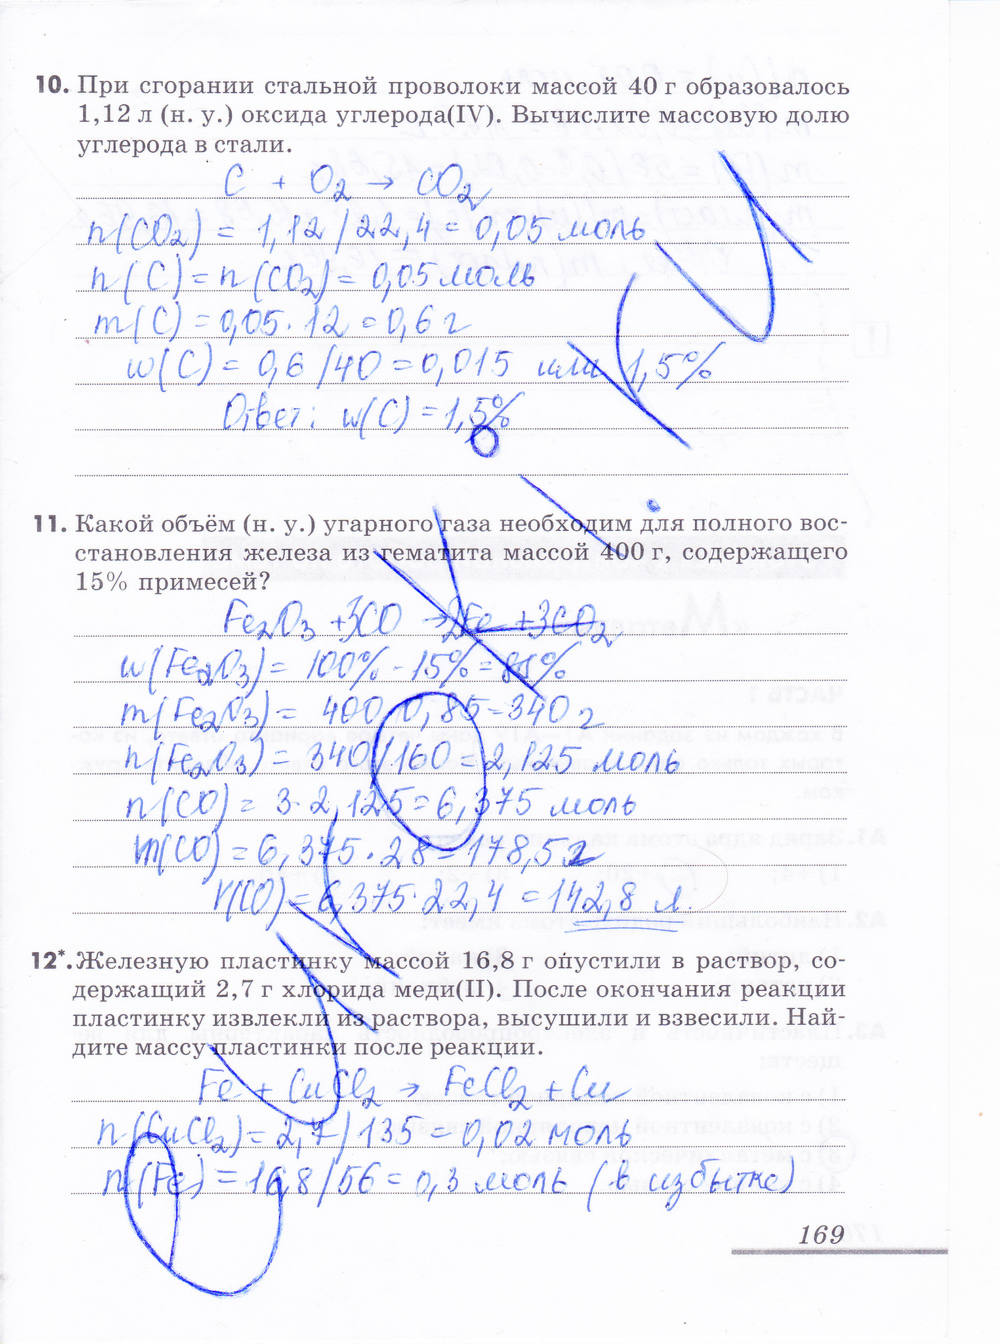 10. При сгорании стальной проволоки массой 40 г образовалось
1,12 л (н. у.) оксида углерода(IV). Вычислите массовую долю
углерода в стали.
C + O₂ → CO₂
n(CO₂) = 1,12/22,4 = 0,05 моль
n(C) = n(CO₂) = 0,05 моль
m(C) = 0,05·12 = 0,6 г
w(C) = 0,6/40 = 0,015 или 1,5%
Ответ: w(C) = 1,5%
11. Какой объём (н. у.) угарного газа необходим для полного вос-
становления железа из гематита массой 400 г, содержащего
15% примесей?
Fe₂O₃ + 3CO → 2Fe + 3CO₂
w(Fe₂O₃) = 100% - 15% = 85%
m(Fe₂O₃) = 400·0,85 = 340 г
n(Fe₂O₃) = 340/160 = 2,125 моль
n(CO) = 3·2,125 = 6,375 моль
m(CO) = 6,375·28 = 178,5 г
V(CO) = 6,375·22,4 = 142,8 л.
12*. Железную пластинку массой 16,8 г опустили в раствор, со-
держащий 2,7 г хлорида меди(II). После окончания реакции
пластинку извлекли из раствора, высушили и взвесили. Най-
дите массу пластинки после реакции.
Fe + CuCl₂ → FeCl₂ + Cu
n(CuCl₂) = 2,7/135 = 0,02 моль
n(Fe) = 16,8/56 = 0,3 моль (в избытке)
169